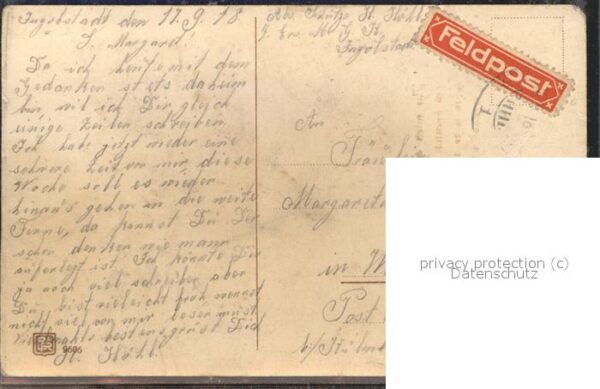 Ingolstadt den 17.9.18
L. Margaret!
Da ich heute mit dem
Gedanken stets daheim
bin will ich Dir gleich
einige Zeilen schreiben
Ich habe jetzt wieder eine
schwere Zeit vor mir diese
Woche soll es wieder
hinaus gehen in die weite
Ferne, da kannst Du Dir
schon denken wie mann
aufgelegt ist. Ich könnte Dir
ja noch viel schreiben aber
Du bist vieleicht froh wennst
nicht viel von mir lesen must
bestens grüst Dich
St. Hößl.
9606
Abs. Schütze St. Hößl
Ers. M. G. K.
Ingolstadt
Feldpost
An
Fräulein
Margareta
in
Post
b/
privacy protection (c)
Datenschutz